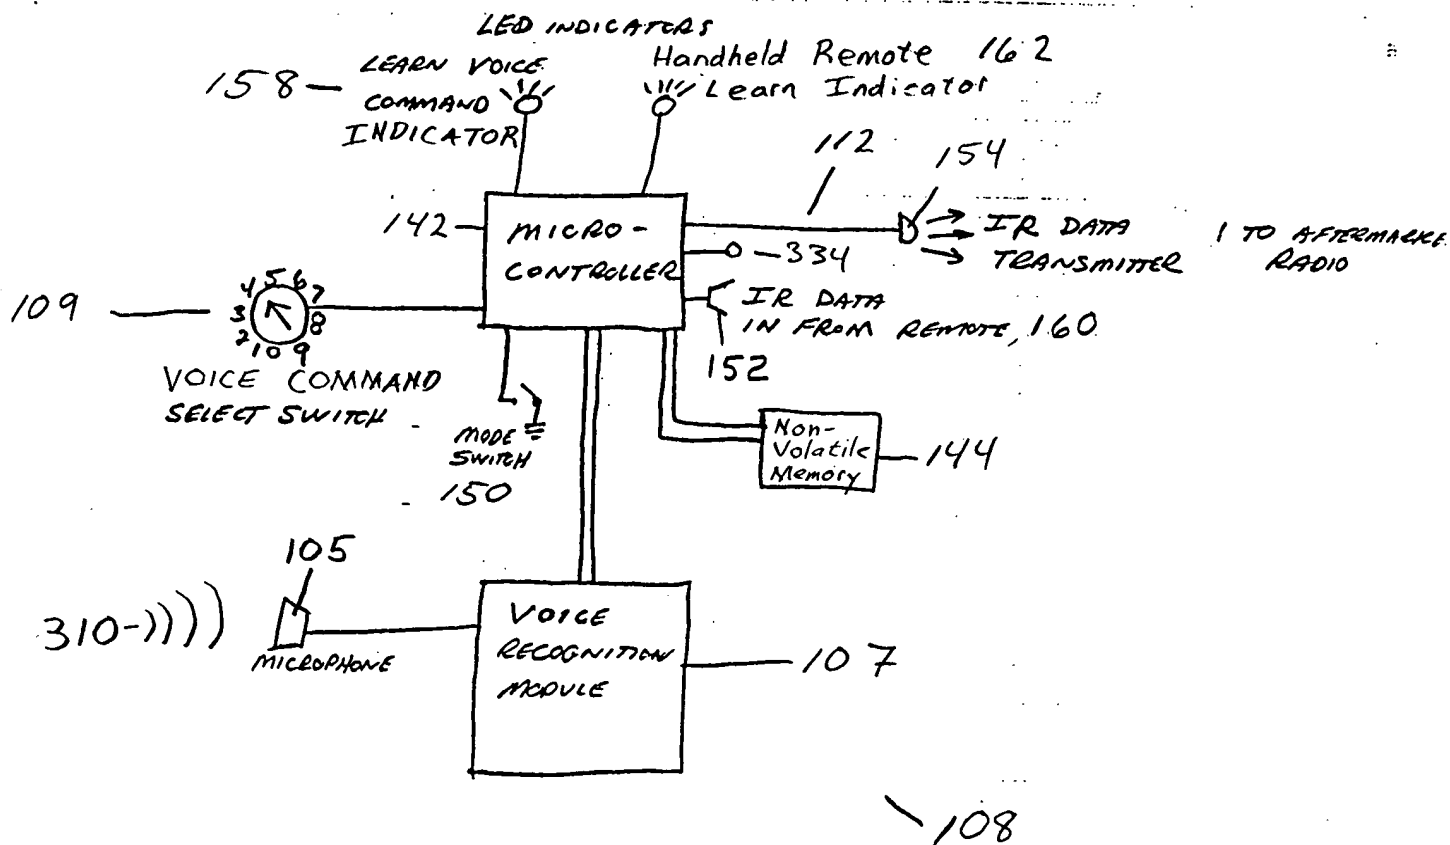 LED INDICATORS
158
LEARN VOICE
COMMAND
INDICATOR
Handheld Remote 162
Learn Indicator
112
154
142
MICRO-
CONTROLLER
IR DATA
TRANSMITTER
1 TO AFTERMARKE
RADIO
334
IR DATA
IN FROM REMOTE, 160
152
109
1 2 3 4 5 6 7 8 9 10
VOICE COMMAND
SELECT SWITCH
MODE
SWITCH
150
Non-
Volatile
Memory
144
105
310
MICROPHONE
VOICE
RECOGNITION
MODULE
107
108